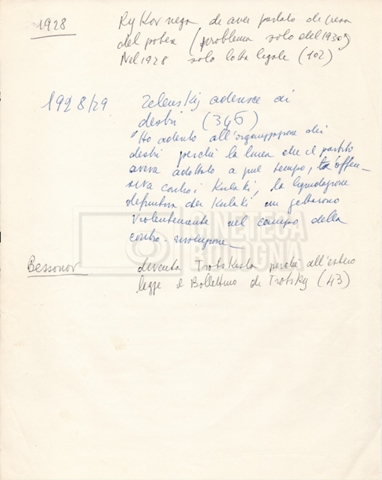 1928 Rykov nega di aver parlato di presa
del potere (problema solo del 1930)
Nel 1928 solo lotta legale (102)
1928/29 Zelenskij aderisce ai
destri (346)
"Ho aderito all'organizzazione dei
destri perché la linea che il partito
aveva adottato a quel tempo, la offen-
siva contro i Kulaki, la liquidazione
definitiva dei Kulaki mi gettarono
violentemente nel campo della
contro-rivoluzione
Bessonov diventa Trotskista perché all'estero
legge il Bollettino di Trotsky (43)
CINETECA
BOLOGNA